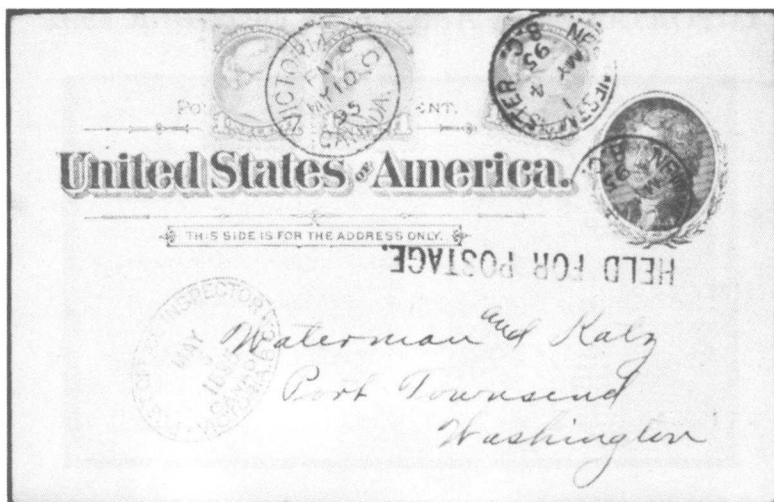 VICTORIA B.C.
PM 6
MY 10
95
CANADA.
NEW WESTMINSTER B.C.
MY 4
95
PO ENT.
United States of America.
THIS SIDE IS FOR THE ADDRESS ONLY.
HELD FOR POSTAGE.
POST OFFICE INSPECTOR
MAY
VICTORIA B.C.
Waterman and Katz
Port Townsend
Washington